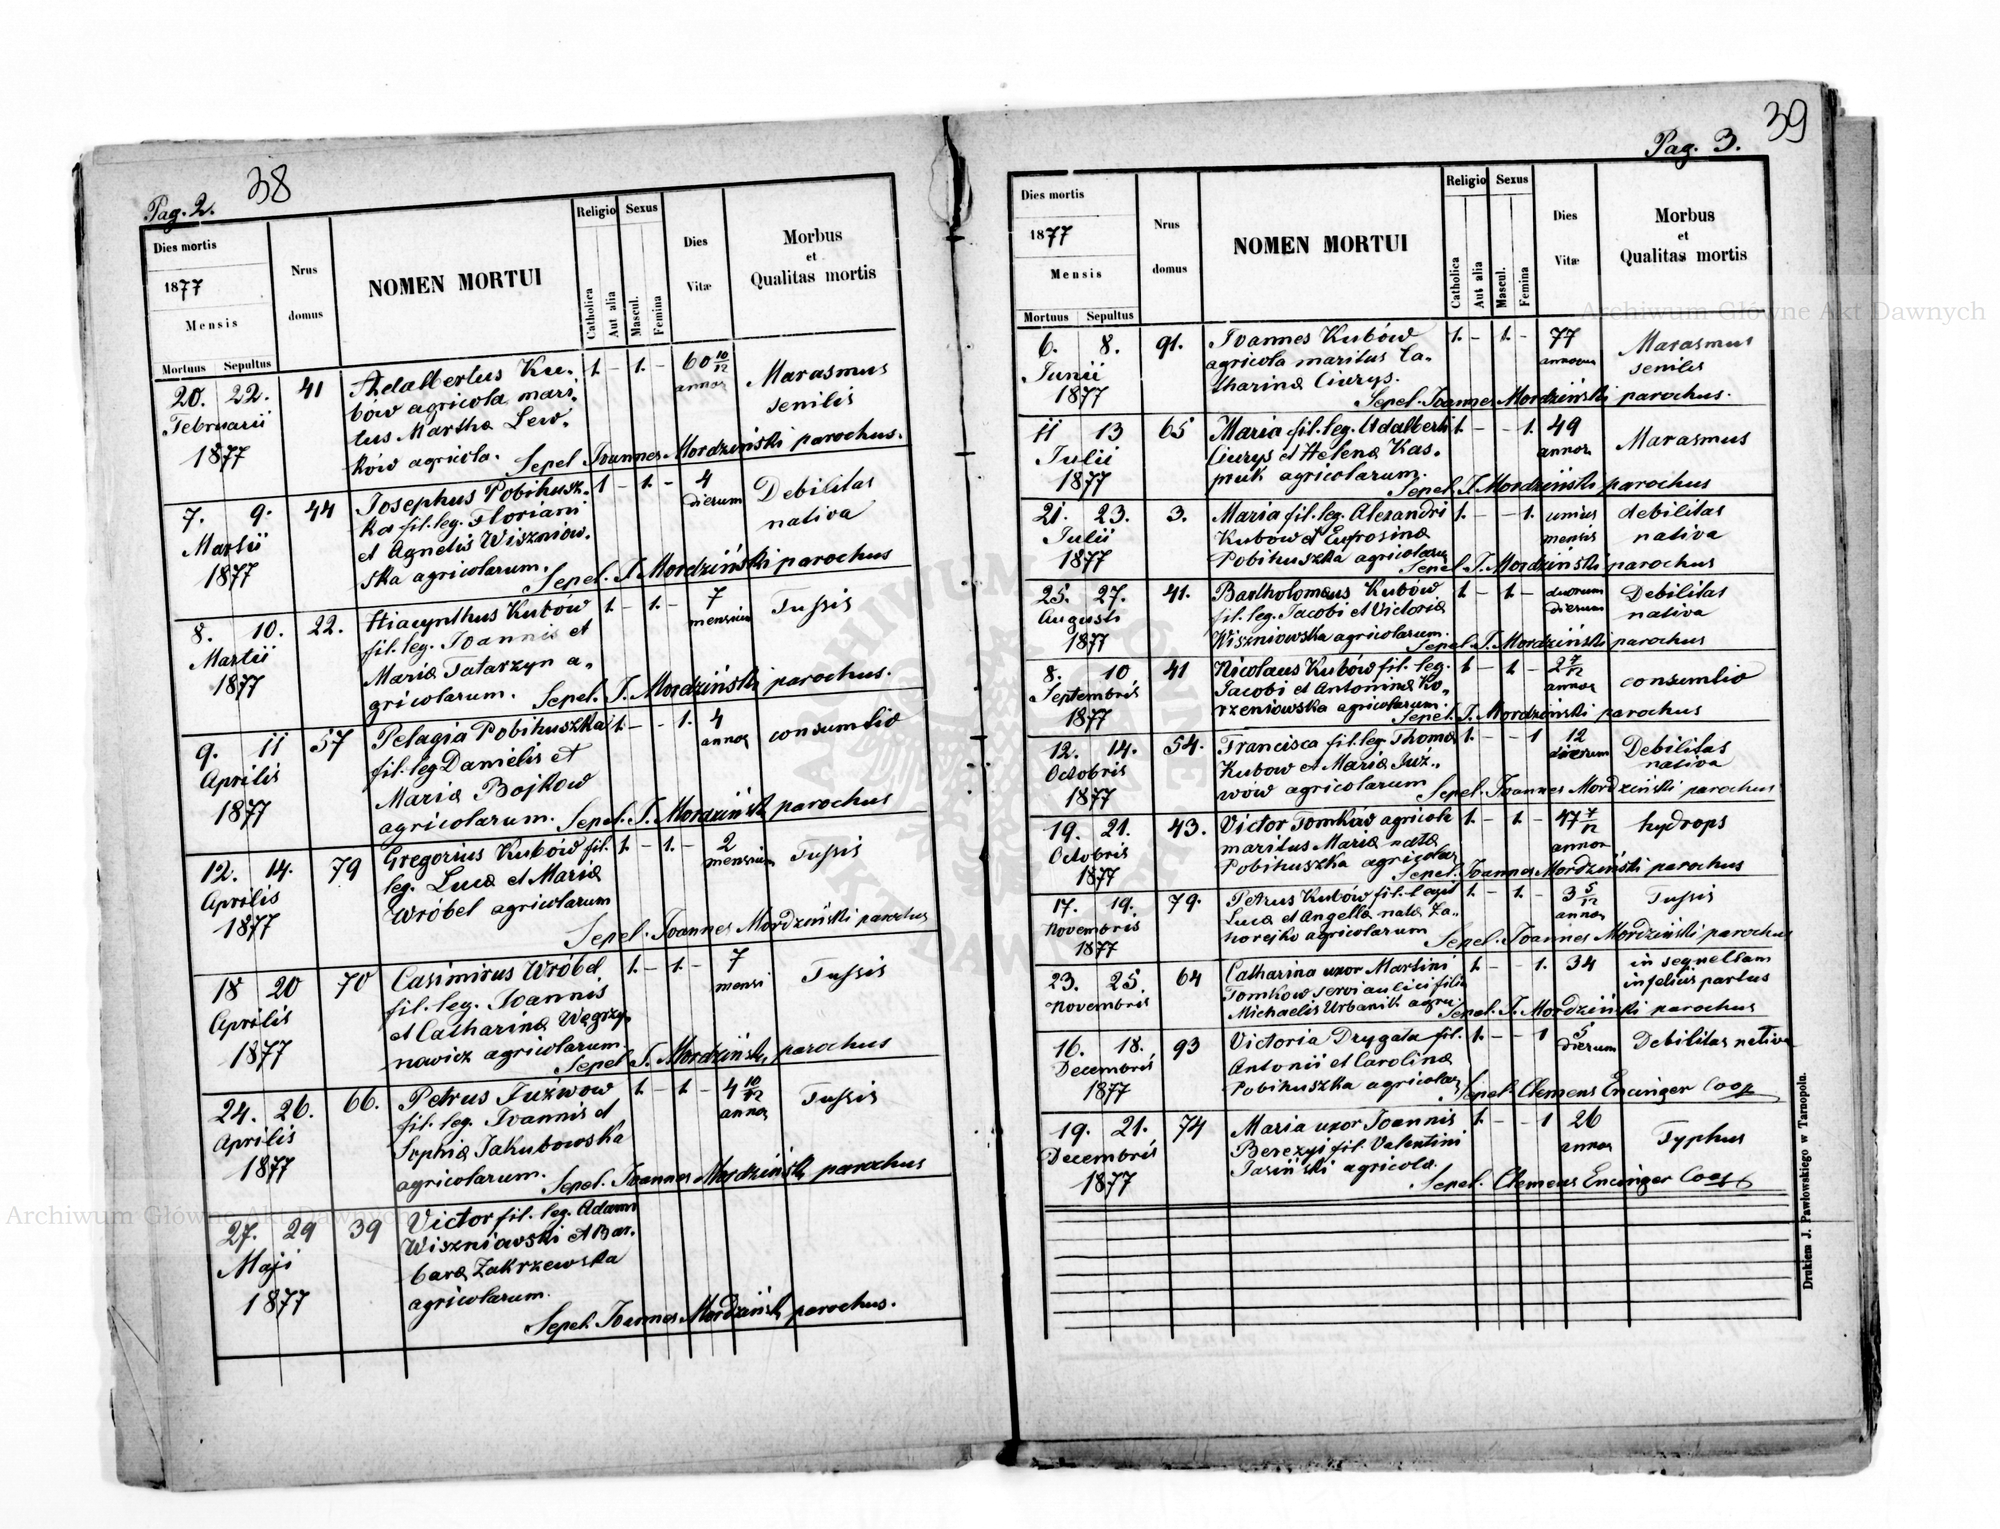 38
Pag. 2.
Dies mortis
1877
Mensis
Mortuus Sepultus
Nrus domus
NOMEN MORTUI
Religio
Catholica
Aut alia
Sexus
Mascul.
Femina
Dies Vitæ
Morbus
et
Qualitas mortis
20. 22. 41 Adalbertus Ku- 1. - 1. - 60 10/12 Marasmus
Februarii bów agricola mari- annor senilis
1877 tus Marthæ Lew-
ków agricola. Sepel Joannes Mordziński parochus.
7. 9. 44 Josephus Pobihusz- 1 - 1. - 4 Debilitas
Martii ka fil. leg. Floriani dierum nativa
1877 et Agnetis Wiszniow-
ska agricolarum. Sepel. J Mordziński parochus
8. 10. 22. Hiacynthus Kubów 1. - 1. - 7 Tussis
Martii fil. leg. Joannis et mensium
1877 Mariæ Tatarzyn a-
gricolarum. Sepel. J. Mordziński parochus.
9. 11 57 Pelagia Pobihuszka 1. - - 1. 4 consumtio
Aprilis fil. leg Danielis et annor
1877 Mariæ Bojkow
agricolarum. Sepel. J. Mordziński parochus
12. 14. 79 Gregorius Kubów fil. 1. - 1. - 2 Tussis
Aprilis leg. Lucæ et Mariæ mensium
1877 Wróbel agricolarum
Sepel. Joannes Mordziński parochus
18 20 70 Casimirus Wróbel 1. - 1. - 7 Tussis
Aprilis fil. leg. Joannis mensi
1877 et Catharinæ Węgrzy-
nowicz agricolarum
Sepel J. Mordziński parochus
24. 26. 66. Petrus Juźwow 1. - 1 - 4 10/12 Tussis
Aprilis fil. leg. Joannis et annor
1877 Sophiæ Jakubowska
agricolarum. Sepel. Joannes Mordziński parochus
27. 29 39 Victor fil. leg. Adami
Maji Wiszniowski et Bar-
1877 baræ Zakrzewska
agricolarum.
Sepel. Joannes Mordziński parochus.
39
Pag. 3.
Dies mortis
1877
Mensis
Mortuus Sepultus
Nrus domus
NOMEN MORTUI
Religio
Catholica
Aut alia
Sexus
Mascul.
Femina
Dies Vitæ
Morbus
et
Qualitas mortis
6. 8. 91. Joannes Kubów 1. - 1. - 77 Marasmus
Junii agricola maritus Ca- annorum senilis
1877 tharinæ Ciurys.
Sepel. Joannes Mordziński parochus.
11 13 65 Maria fil. leg. Adalberti 1. - - 1. 49 Marasmus
Julii Ciurys et Helenæ Kas- annor
1877 pruk agricolarum.
Sepel. J Mordziński parochus
21. 23. 3. Maria fil. leg. Alexandri 1. - - 1. unius debilitas
Julii Kubów et Eufrosinæ mensis nativa
1877 Pobihuszka agricolaru
Sepel. J. Mordziński parochus
25. 27. 41. Bartholomæus Kubów 1. - 1. - duorum Debilitas
Augusti fil. leg. Jacobi et Victoriæ dierum nativa
1877 Wiszniowska agricolarum.
Sepel. J. Mordziński parochus
8. 10 41 Nicolaus Kubów fil. leg. 1. - 1. - 2 7/12 consumtio
Septembris Jacobi et Antoninæ Ko- annor
1877 rzeniowska agricolarum.
Sepel. J. Mordziński parochus
12. 14. 54. Francisca fil. leg. Thomæ 1. - - 1 12 Debilitas
Octobris Kubow et Mariæ Júź- dierum nativa
1877 wów agricolarum
Sepel. Joannes Mordziński parochus
19. 21. 43. Victor Tomków agricola 1. - 1. - 47 7/12 hydrops
Octobris maritus Mariæ natæ annor
1877 Pobihuszka agricolar
Sepel. Joannes Mordziński parochus
17. 19. 79. Petrus Kubów fil. legit 1. - 1. - 3 5/12 Tussis
Novembris Lucæ et Angellæ natæ Za- annor
1877 horejko agricolarum
Sepel. Joannes Mordziński parochus
23. 25. 64 Catharina uxor Martini 1. - - 1. 34 in sequellam
Novembris Tomkow servi aulici filia infelius partus
Michaelis Urbanik agri.
Sepel. J. Mordziński parochus
16. 18. 93 Victoria Drygała fil. 1. - - 1 5 Debilitas nativa
Decembris Antonii et Carolinæ dierum
1877 Pobihuszka agricolar
Sepel. Clemens Encinger Coop
19. 21. 74 Maria uxor Joannis 1. - - 1 26 Typhus
Decembris Berezyi fil. Valentini annor
1877 Jasiński agricola.
Sepel. Clemens Encinger Coop
Drukiem J. Pawłowskiego w Tarnopolu.
Archiwum Główne Akt Dawnych
Archiwum Główne Akt Dawnych
ARCHIWUM GŁÓWNE AKT DAWNYCH